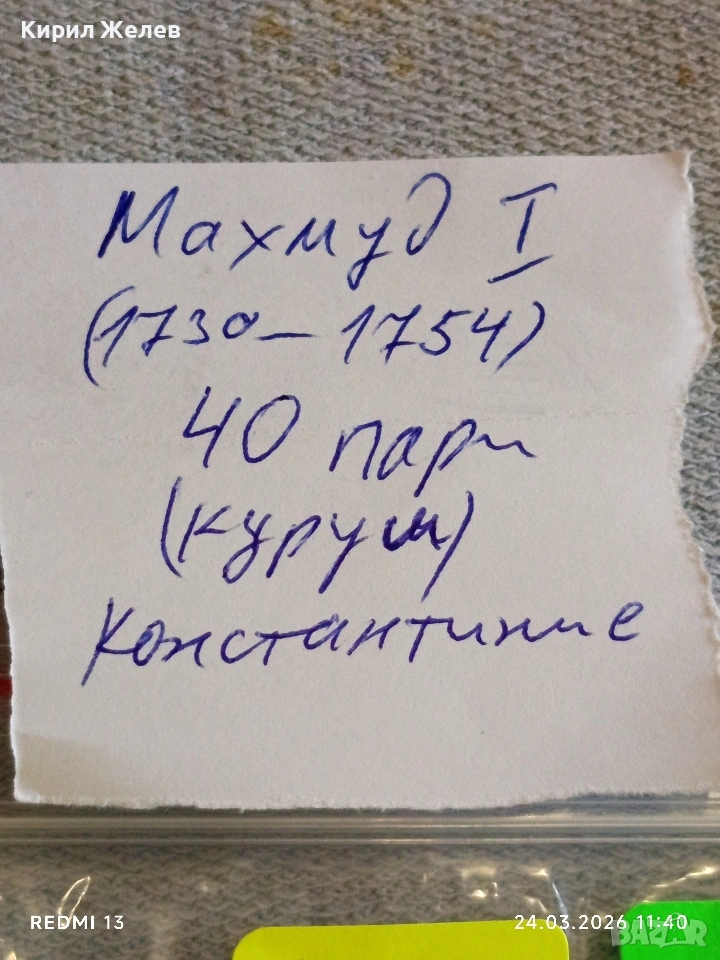 Кирил Желев
Махмуд I
(1730-1754)
40 пари
(куруш)
Константиние
REDMI 13
24.03.2026 11:40
BAZAR